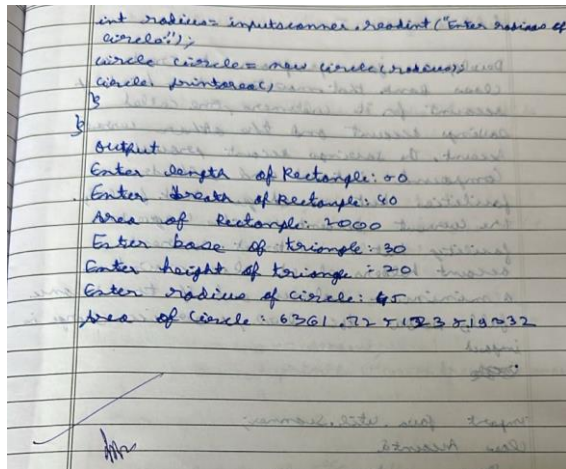 int radius= inputscanner.readint("Enter radius of
circle:");
circle circle= new circle(radius);
circle.printarea()
}
}
output
Enter length of Rectangle: 50
Enter breath of Rectangle: 40
Area of Rectangle: 2000
Enter base of triangle: 30
Enter height of triange : 20
Enter radius of circle: 45
Area of Circle : 6361.725123519332